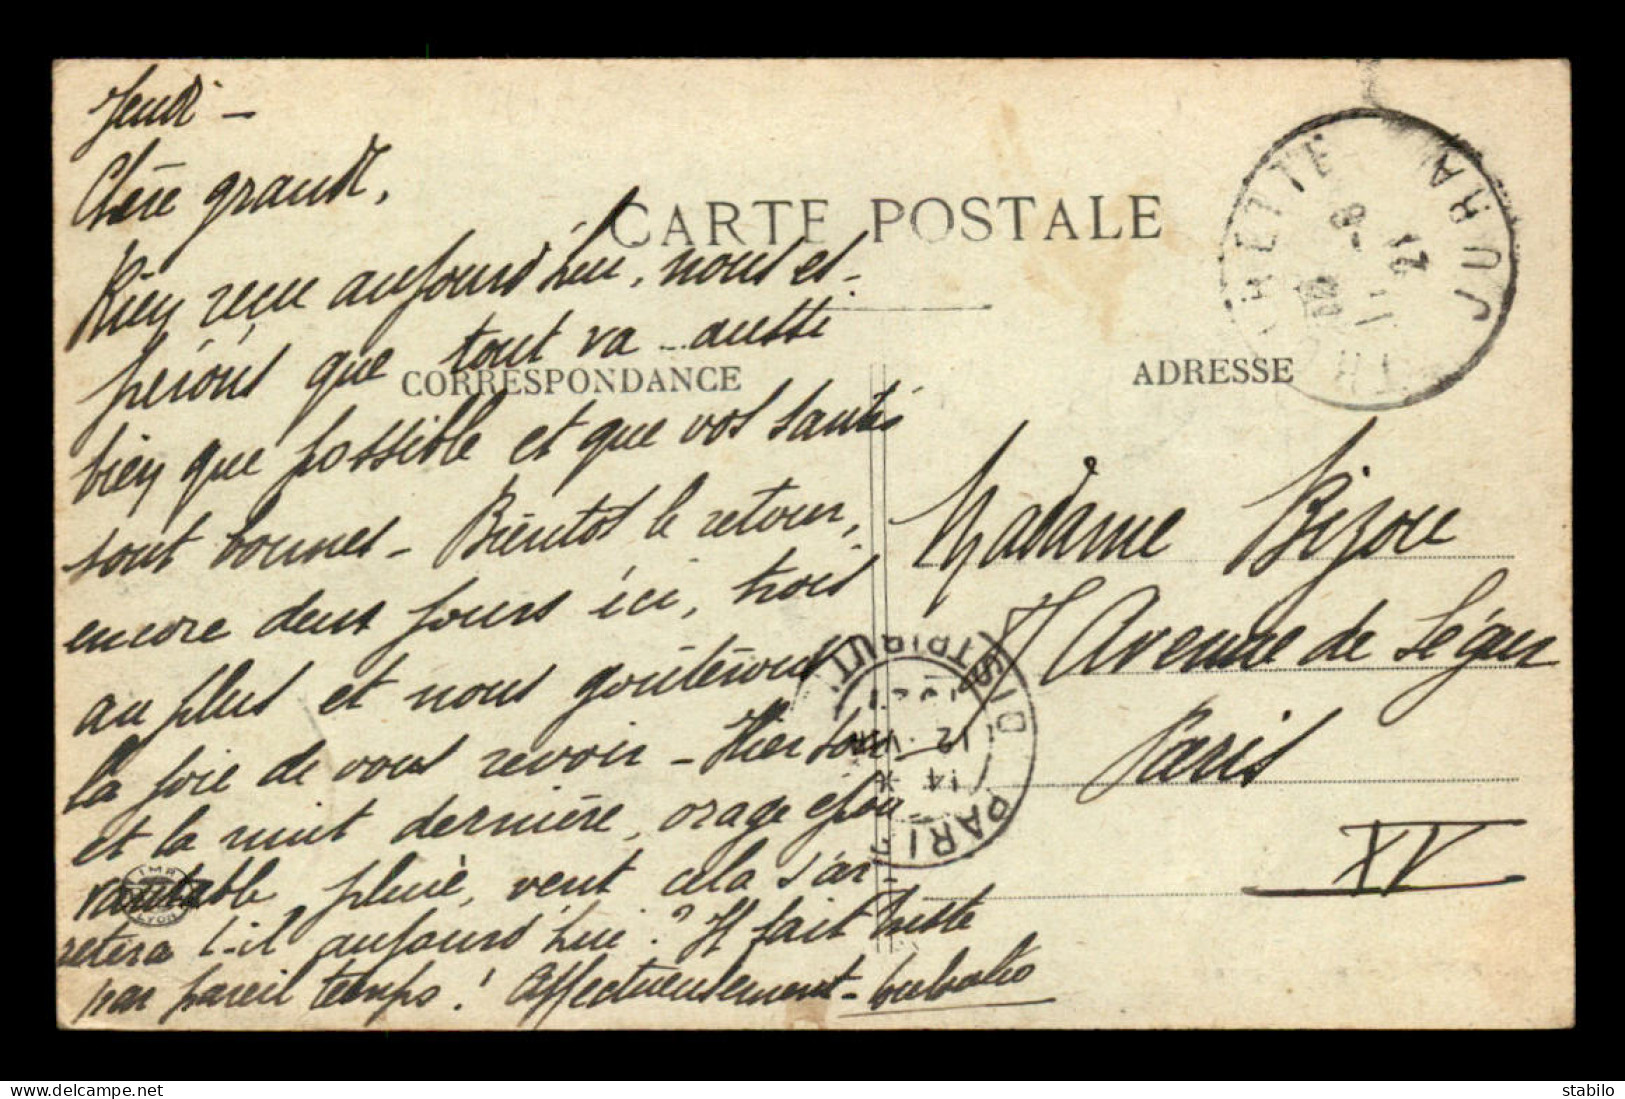 Jeudi -
Chère grandt,
CARTE POSTALE
Rien reçu aujourd'hui, nous es-
pérons que tout va aussi
CORRESPONDANCE
bien que possible et que vos santés
sont bonnes - Bientôt le retour,
encore deux jours ici, trois
au plus et nous goûterons
la joie de vous revoir - Hier soir
et la nuit dernière, orage épou-
vantable pluie, vent cela s'ar-
retera t-il aujourd'hui ? Il fait triste
par pareil temps ! Affectueusement -
ADRESSE
Madame Bizou
7 Avenue de Ségur
Paris
XV
JURA
8 - 8
21
PARIS
DISTRIBUTION
12
14
IMP
LYON
stabilo